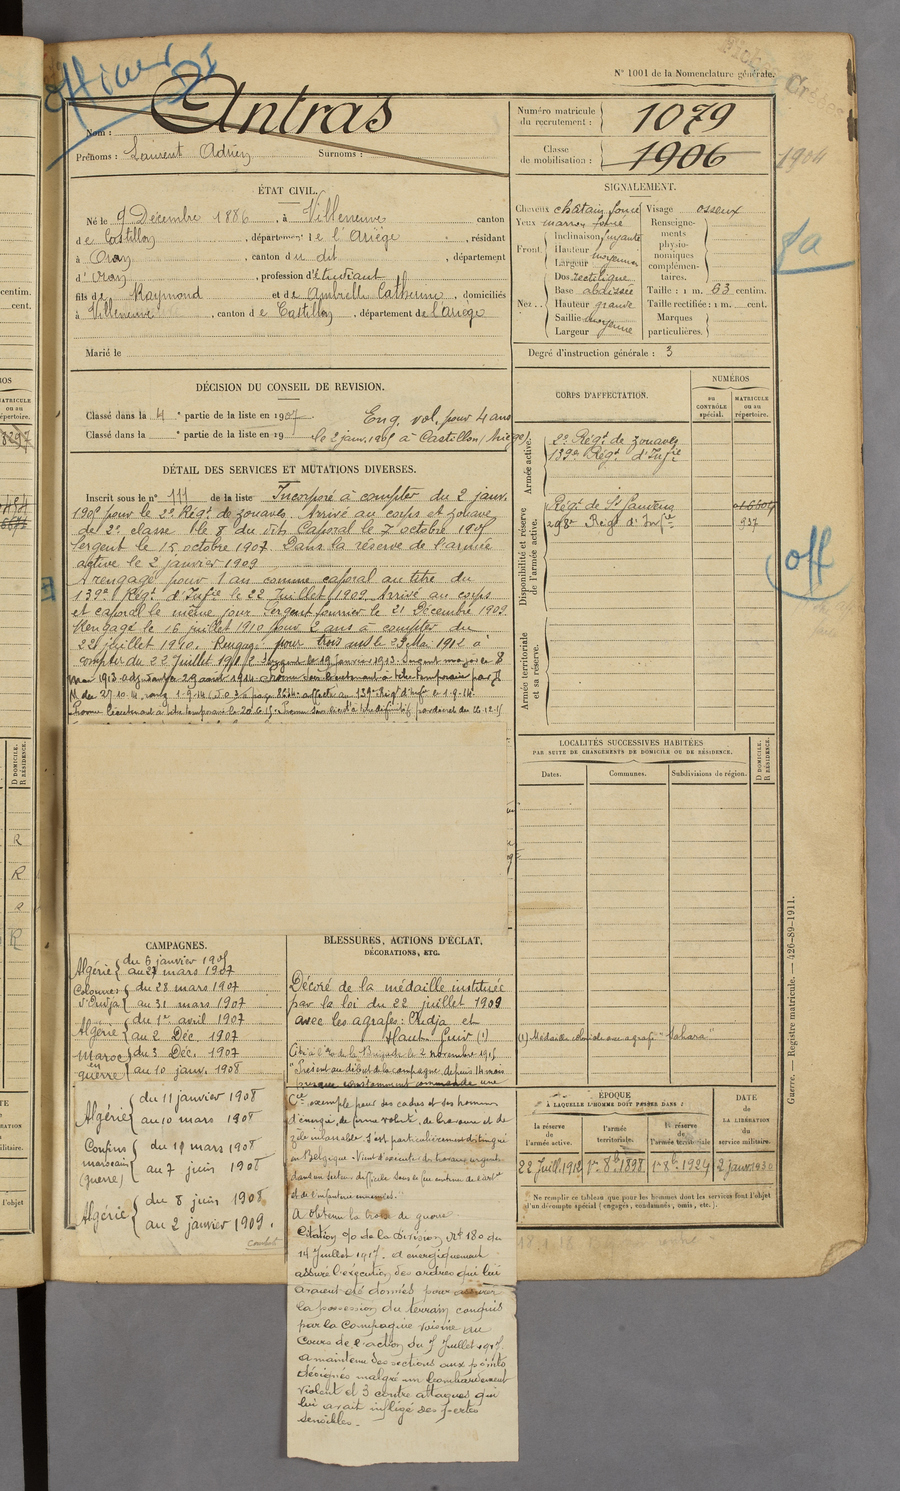 officier
N° 1001 de la Nomenclature générale.
Nom :
Antras
Prénoms : Laurent Adrien Surnoms :
Numéro matricule du recrutement : 1079
Classe de mobilisation : 1906
1904
ÉTAT CIVIL.
Né le 9 Décembre 1886, à Villeneuve canton
de Castillon, département de l'Ariège, résidant
à Oran, canton du dit, département
d'Oran, profession d'étudiant
fils de Raymond et de Ambrelle Catherine, domiciliés
à Villeneuve, canton de Castillon, département de l'Ariège
Marié le
SIGNALEMENT.
Cheveux châtain foncé
Yeux marron foncé
Front Inclinaison fuyante
Hauteur moyenne
Largeur
Nez Dos rectiligne
Base abaissée
Hauteur grande
Saillie moyenne
Largeur moyenne
Visage osseux
Renseignements physionomiques complémentaires.
Taille : 1 m. 63 centim.
Taille rectifiée : 1 m. cent.
Marques particulières.
Degré d'instruction générale : 3
DÉCISION DU CONSEIL DE REVISION.
Classé dans la 4e partie de la liste en 1907
Eng. vol. pour 4 ans
Classé dans la e partie de la liste en 19
le 2 janv. 1905 à Castillon (Ariège)
DÉTAIL DES SERVICES ET MUTATIONS DIVERSES.
Inscrit sous le n° 111 de la liste Incorporé à compter du 2 janv.
1905 pour le 2e Régt de zouaves. Arrivé au corps et zouave
de 2e classe le 8 du dit. Caporal le 7 octobre 1905
Sergent le 15 octobre 1907. Dans la réserve de l'armée
active le 2 janvier 1909
Arengagé pour 1 an comme caporal au titre du
139e Régt d'Infie le 22 Juillet 1909. Arrivé au corps
et caporal le même jour. Sergent fourrier le 21 Décembre 1909.
Rengagé le 16 juillet 1910 pour 2 ans à compter du
22 juillet 1910. Rengagé pour trois ans le 23 Mai 1912 à
compter du 22 Juillet 191 Sergent le 19 Janvier 1913. Sergent major le 8
Mai 1913 adjudant le 29 août 1914. Promu sous lieutenant à titre temporaire par
M du 27-10-14, rang 1-9-14 affecté au 139e Régt d'Inf le 1-9-14.
Promu lieutenant à titre temporaire le 20-6-15. Promu sous lieut à titre définitif par décret du 16-12-15
CORPS D'AFFECTATION.
NUMÉROS
au CONTRÔLE spécial.
MATRICULE ou au répertoire.
Armée active.
2e Régt de zouaves
139e Régt d'Infie
Disponibilité et réserve de l'armée active.
Régt de St Gaudens
298e Régt d'Infie
937
off
Armée territoriale et sa réserve.
LOCALITÉS SUCCESSIVES HABITÉES
PAR SUITE DE CHANGEMENTS DE DOMICILE OU DE RÉSIDENCE.
Dates. Communes. Subdivisions de région.
D DOMICILE. R RÉSIDENCE.
CAMPAGNES.
Algérie du 6 janvier 1905
au 27 mars 1907
Colonnes d'Oudja du 28 mars 1907
au 31 mars 1907
Algérie du 1er avril 1907
au 2 Déc. 1907
Maroc en guerre du 3 Déc. 1907
au 10 janv. 1908
Algérie du 11 janvier 1908
au 10 mars 1908
Confins marocains (guerre) du 11 mars 1908
au 7 juin 1908
Algérie du 8 juin 1908
au 2 janvier 1909.
BLESSURES, ACTIONS D'ÉCLAT,
DÉCORATIONS, ETC.
Décoré de la médaille instituée
par la loi du 22 juillet 1909
avec les agrafes : Oudja et
Haut-Guir (1)
(1) Médaille coloniale avec agrafe "Sahara"
Cité à l'O. de la Brigade le 2 novembre 1915
"Présent au début de la campagne, depuis 14 mois
presque constamment commande une
Cie exemple pour ses cadres et ses hommes
d'énergie, de ferme volonté, de bravoure et de
zèle inlassable s'est particulièrement distingué
en Belgique. Vient d'exécuter des travaux urgents
dans un secteur difficile sous le feu continu de l'artie
et de l'infanterie ennemies."
A obtenu la croix de guerre.
Citation O/ de la Division N° 180 du
14 Juillet 1917. "A énergiquement
assuré l'exécution des ordres qui lui
avaient été donnés pour assurer
la possession du terrain conquis
par la Compagnie voisine au
cours de l'action du 7 Juillet 1917.
a maintenu ses sections aux points
désignés malgré un bombardement
violent et 3 contre attaques qui
lui avait infligé des pertes
sensibles.
ÉPOQUE
À LAQUELLE L'HOMME DOIT PASSER DANS :
la réserve de l'armée active.
l'armée territoriale.
la réserve de l'armée territoriale
DATE DE LA LIBÉRATION du service militaire.
22 Juill. 1912
1er 8bre 1924
2 janv. 1930
Ne remplir ce tableau que pour les hommes dont les services font l'objet
d'un décompte spécial (engagés, condamnés, omis, etc.).
Guerre. — Registre matricule. — 426-89-1911.